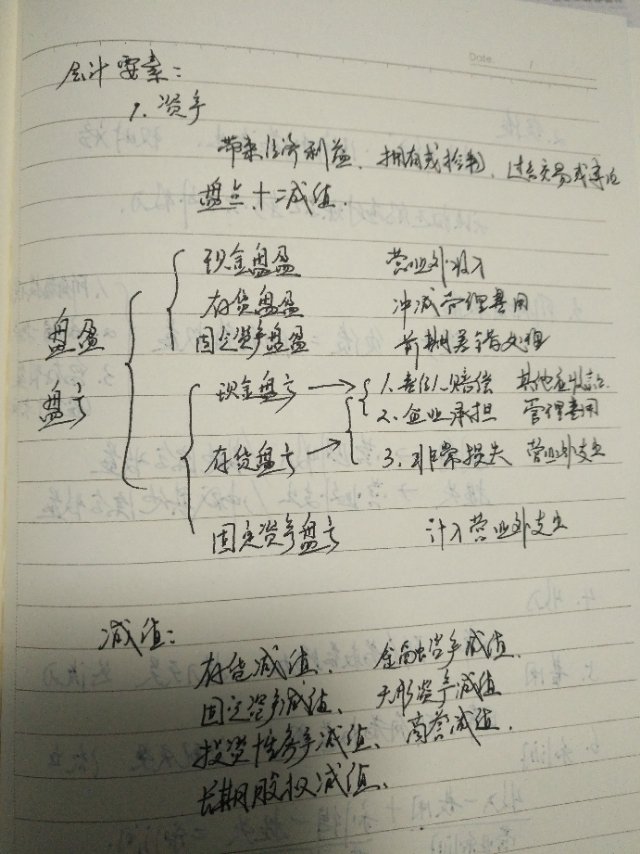 Date.
会计要素:
1. 资产
带来经济利益、拥有或控制、过去交易或事项
盘点十二减值.
盘盈
盘亏
现金盘盈 营业外收入
存货盘盈 冲减管理费用
固定资产盘盈 前期差错处理
现金盘亏 → 1. 责任人赔偿 其他应收款
2. 企业承担 管理费用
存货盘亏 → 3. 非常损失 营业外支出
固定资产盘亏 计入营业外支出
减值:
存货减值、金融资产减值、
固定资产减值、无形资产减值
投资性房产减值、商誉减值.
长期股权减值.